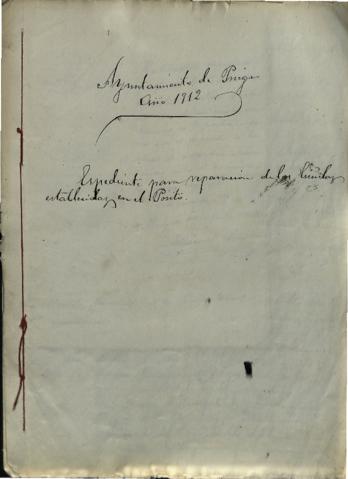 Ayuntamiento de Priego
Año 1912
Expediente para reparacion de las
establecidas en el Posito.